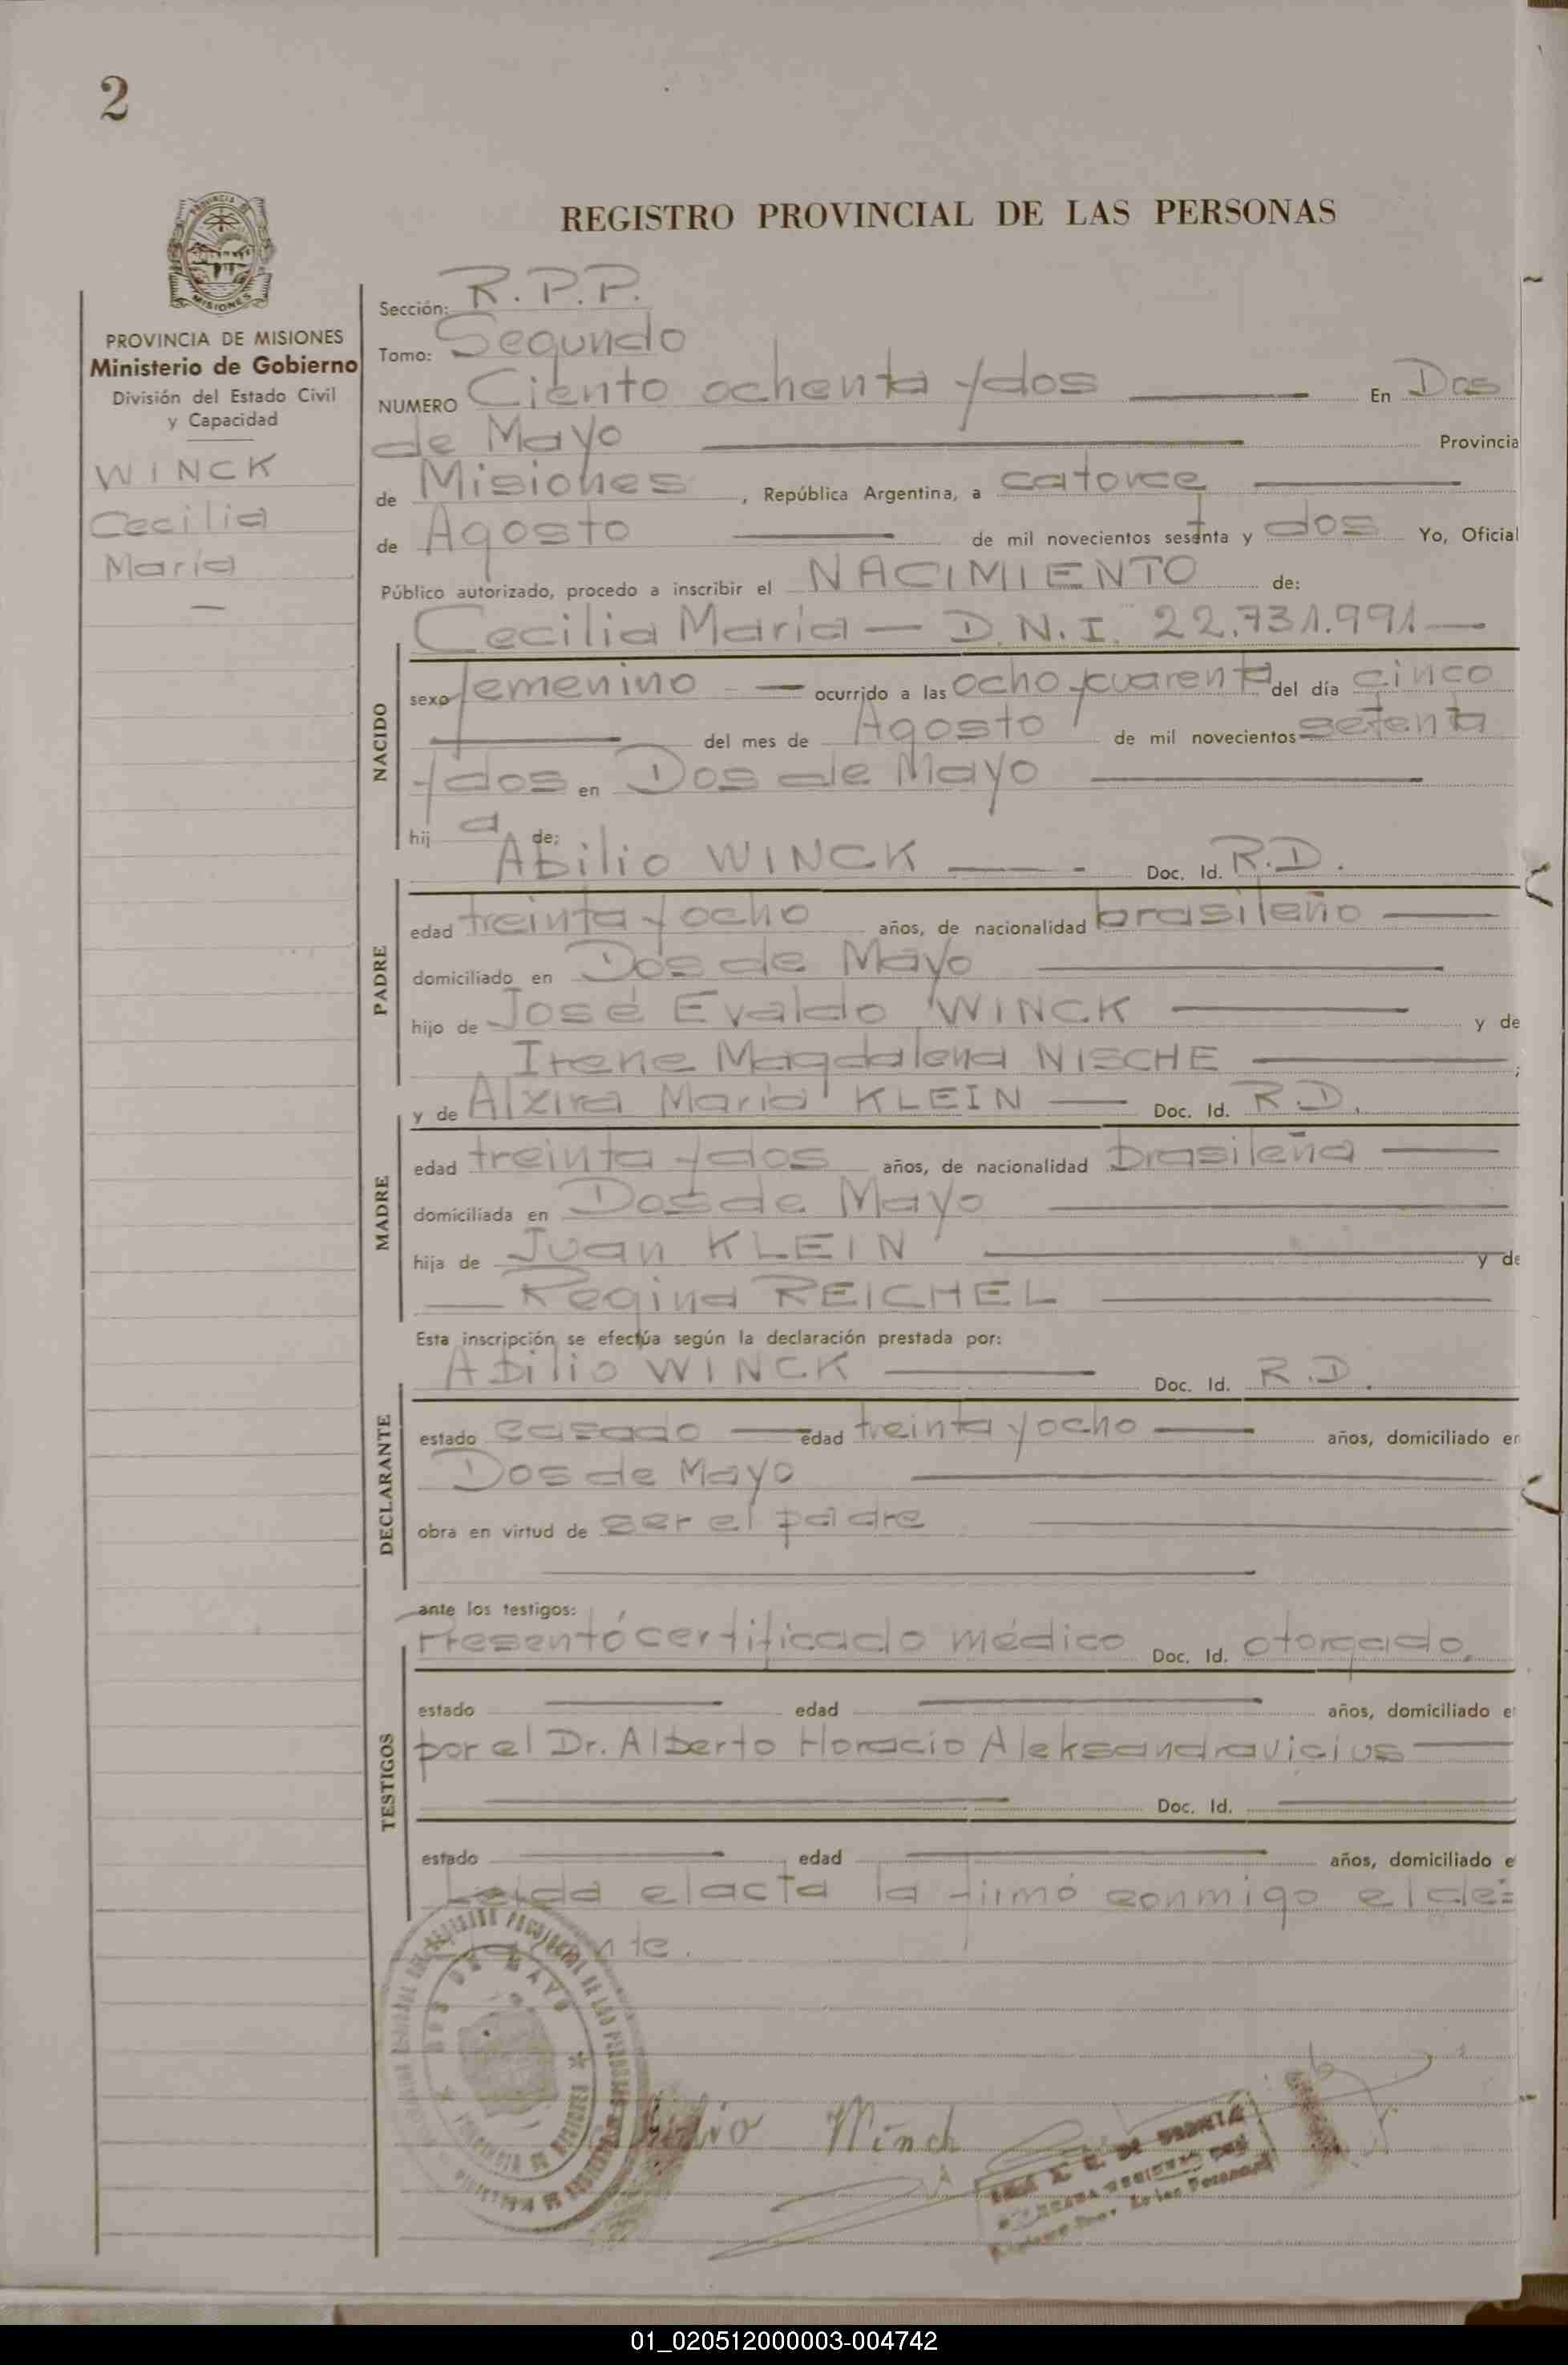 2
REGISTRO PROVINCIAL DE LAS PERSONAS
MISIONES
PROVINCIA DE MISIONES
Ministerio de Gobierno
División del Estado Civil
y Capacidad
WINCK
Cecilia
María
Sección: R.P.P.
Tomo: Segundo
NUMERO Ciento ochenta y dos En Dos
de Mayo Provincia
de Misiones, República Argentina, a catorce
de Agosto de mil novecientos sesenta y dos Yo, Oficial
Público autorizado, procedo a inscribir el NACIMIENTO de:
Cecilia María — D.N.I. 22.731.991 —
NACIDO
sexo femenino — ocurrido a las ocho y cuarenta del día cinco
del mes de Agosto de mil novecientos setenta
y dos en Dos de Mayo
hij a de:
Abilio WINCK Doc. Id. R.D.
PADRE
edad treinta y ocho años, de nacionalidad brasileño
domiciliado en Dos de Mayo
hijo de José Evaldo WINCK y de
Irene Magdalena NISCHE ;
y de Alzira María KLEIN Doc. Id. R.D.
MADRE
edad treinta y dos años, de nacionalidad brasileña
domiciliada en Dos de Mayo
hija de Juan KLEIN y de
Regina REICHEL
Esta inscripción se efectúa según la declaración prestada por:
Abilio WINCK Doc. Id. R.D.
DECLARANTE
estado casado edad treinta y ocho años, domiciliado en
Dos de Mayo
obra en virtud de ser el padre
ante los testigos:
Presentó certificado médico Doc. Id. otorgado,
TESTIGOS
estado edad años, domiciliado e
por el Dr. Alberto Horacio Aleksandravicius
Doc. Id.
estado edad años, domiciliado e
Leida el acta la firmó conmigo el de=
nte.
DOS DE MAYO
Winck
01_020512000003-004742